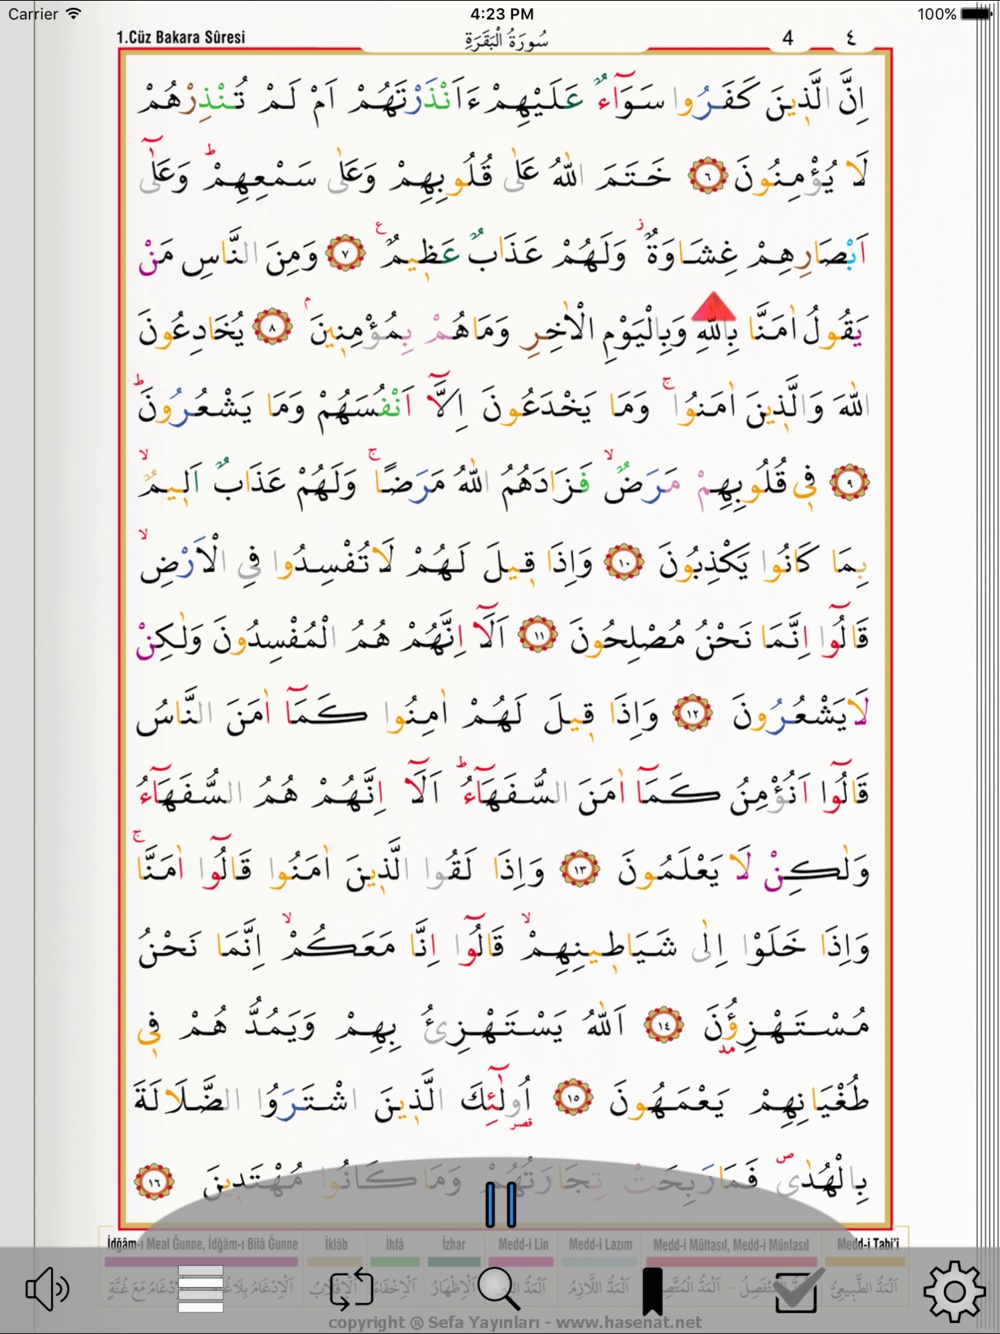 Carrier 4:23 PM 100%
1.Cüz Bakara Sûresi سُورَةُ الْبَقَرَةِ 4 ٤
اِنَّ الَّذٖينَ كَفَرُوا سَوَٓاءٌ عَلَيْهِمْ ءَاَنْذَرْتَهُمْ اَمْ لَمْ تُنْذِرْهُمْ
لَا يُؤْمِنُونَ ٦ خَتَمَ اللّٰهُ عَلٰى قُلُوبِهِمْ وَعَلٰى سَمْعِهِمْؕ وَعَلٰٓى
اَبْصَارِهِمْ غِشَاوَةٌؗ وَلَهُمْ عَذَابٌ عَظٖيمٌ ع ٧ وَمِنَ النَّاسِ مَنْ
يَقُولُ اٰمَنَّا بِاللّٰهِ وَبِالْيَوْمِ الْاٰخِرِ وَمَاهُمْ بِمُؤْمِنٖينَۘ ٨ يُخَادِعُونَ
اللّٰهَ وَالَّذٖينَ اٰمَنُواۚ وَمَا يَخْدَعُونَ اِلَّٓا اَنْفُسَهُمْ وَمَا يَشْعُرُونَؕ
٩ فٖى قُلُوبِهِمْ مَرَضٌۙ فَزَادَهُمُ اللّٰهُ مَرَضًاۚ وَلَهُمْ عَذَابٌ اَلٖيمٌۙ
بِمَا كَانُوا يَكْذِبُونَ ١٠ وَاِذَا قٖيلَ لَهُمْ لَاتُفْسِدُوا فِى الْاَرْضِۙ
قَالُٓوا اِنَّمَا نَحْنُ مُصْلِحُونَ ١١ اَلَٓا اِنَّهُمْ هُمُ الْمُفْسِدُونَ وَلٰكِنْ
لَايَشْعُرُونَ ١٢ وَاِذَا قٖيلَ لَهُمْ اٰمِنُوا كَمَٓا اٰمَنَ النَّاسُ
قَالُٓوا اَنُؤْمِنُ كَمَٓا اٰمَنَ السُّفَهَٓاءُؕ اَلَٓا اِنَّهُمْ هُمُ السُّفَهَٓاءُ
وَلٰكِنْ لَا يَعْلَمُونَ ١٣ وَاِذَا لَقُوا الَّذٖينَ اٰمَنُوا قَالُٓوا اٰمَنَّاۚ
وَاِذَا خَلَوْا اِلٰى شَيَاطٖينِهِمْۙ قَالُٓوا اِنَّا مَعَكُمْۙ اِنَّمَا نَحْنُ
مُسْتَهْزِؤُنَ مد ١٤ اَللّٰهُ يَسْتَهْزِئُ بِهِمْ وَيَمُدُّ هُمْ فٖى
طُغْيَانِهِمْ يَعْمَهُونَ ١٥ اُولٰٓئِكَ قصر الَّذٖينَ اشْتَرَوُا الضَّلَالَةَ
بِالْهُدٰىࣕ فَمَارَبِحَتْ تِجَارَتُهُمْ وَمَا كَانُوا مُهْتَدٖينَ ١٦
İdğâm-ı Meal Ğunne, İdğâm-ı Bilâ Ğunne İklâb İhfâ İzhar Medd-i Lin Medd-i Lazım Medd-i Müttasıl, Medd-i Münfasıl Medd-i Tabi'i
copyright ® Sefa Yayınları - www.hasenat.net